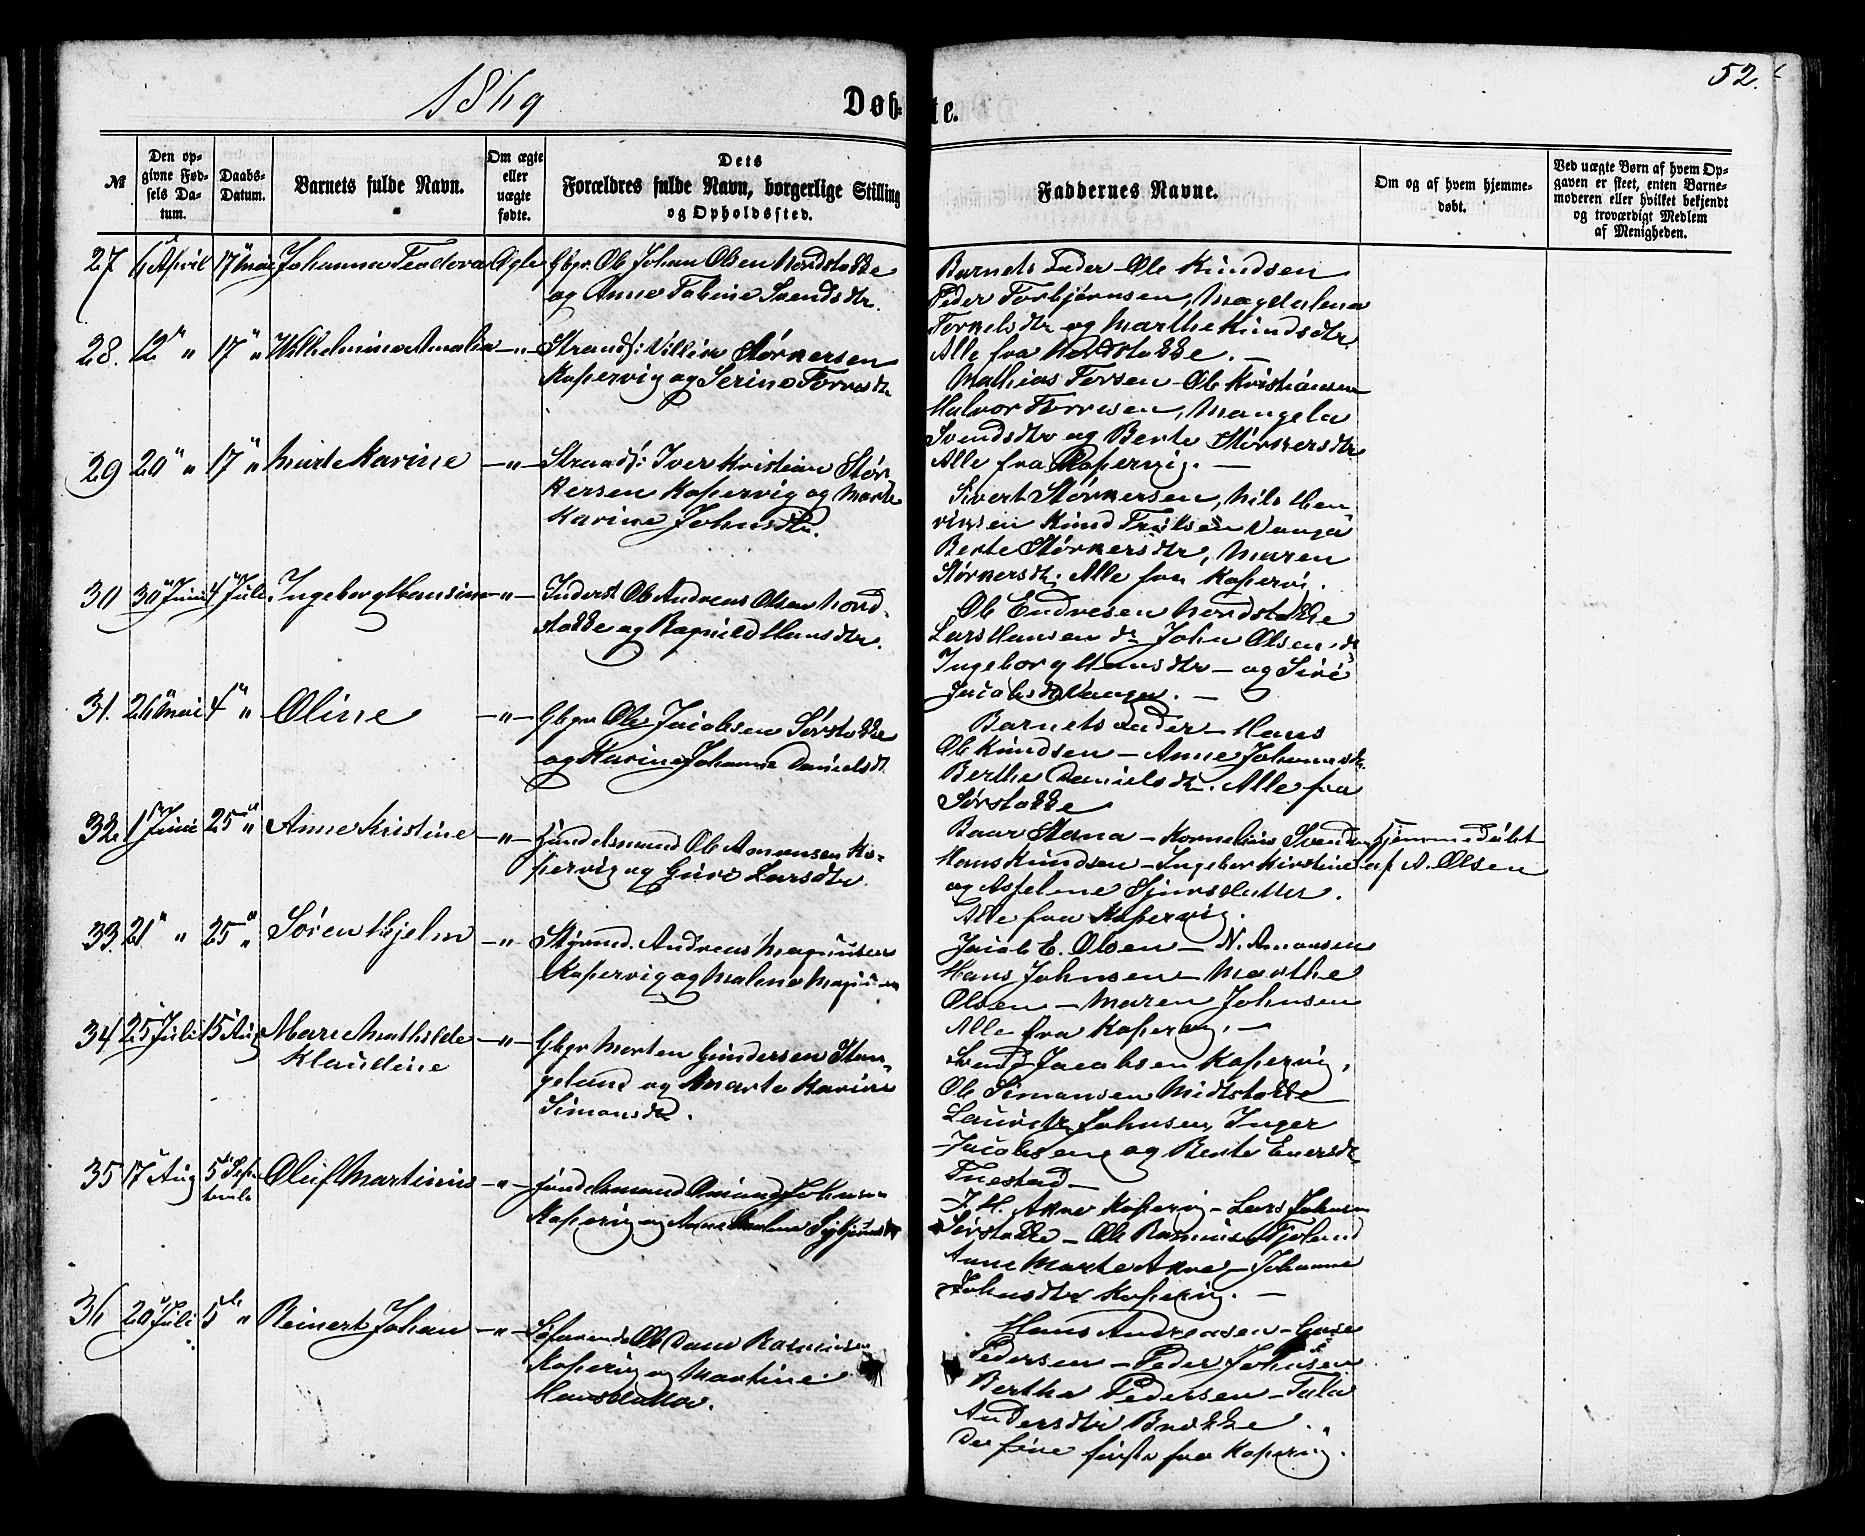 1869
Døb-
te.
52.
№
Den op-
givne Fød-
sels Da-
tum.
Daabs-
Datum.
Barnets fulde Navn.
Om ægte
eller
uægte
fødte.
Dets
Forældres fulde Navn, borgerlige Stilling
og Opholdssted.
Faddernes Navne.
Om og af hvem hjemme-
døbt.
Ved uægte Børn af hvem Op-
gaven er skeet, enten Barne-
moderen eller hvilket bekjendt
og troværdigt Medlem
af Menigheden.
27 6 April 17 Mai Johanna Teodora Ægte Gbgr. Ole Johan Olsen Nordstokke
og Anne Tobine Svendsdtr.
Barnets Fader Ole Knudsen
Peder Torbjørnsen, Magdalena
Torkelsdtr og Marthe Knudsdtr
Alle fra Nordstokke. —
28. 12 " 17 " Wilhelmine Amalia —"— Strands: Villin Størkersen
Kopervig og Serine Torresdtr
Mathias Torsen - Ole Kristiansen
Halvor Torresen, Mangela
Svendsdtr og Berte Størkersdtr
Alle fra Kopervig. —
29 20 " 17 " Marte Karine —"— Strands: Iver Kristian Stør-
kersen Kopervig og Marte
Karine Johnsdtr.
Sivert Størkersen, Nils Hen-
riksen Knud Trulsen Vanga
Berte Størkersdtr, Maren
Størkersdtr. Alle fra Kopervi.
30 30 Juni 4 Juli Ingeborg Hansine —"— Inderst Ole Andreas Olsen Nord-
stokke og Ragnild Hansdtr.
Ole Endresen Nordstokke
Lars Hansen do John Olsen do
Ingeborg Hansdtr - og Siri
Jacobsdtr Vanga. —
31. 26 Mai 4 " Oline —"— Gbgr Ole Jacobsen Sørstokke
og Karine Johanne Danielsdt
Barnets Fader - Hans
Ole Knudsen - Anne Johannesdtr.
Berthe Danielsdtr. Alle fra
Sørstokke
32. 1 Juni 25 " Anne Kristine —"— Handelsmand Ole Amonsen Ko-
pervig og Guro Larsdtr.
Baar Stana - Kornelius Svendsen
Hans Knudsen - Ingebor Kirstine
og Aspelene Sjursdatter.
Alle fra Kopervig.
Hjemmedøbt
af A. Olsen
33. 21 " 25 " Søren Hjelm —"— Styrmd. Andreas Magnusen
Kopervig og Malene Magnusen
Jacob E. Olsen - N. Amonsen
Hans Johnsen - Marthe
Olsen - Maren Johnsen
Alle fra Kopervig. —
34 25 Juli 15 Aug Marie Mathilde —"— Gbgr Morten Gundersen Stan-
Klaudine
geland og Marte Karine
Simonsdtr.
Svend Jacobsen Kopervig,
Ole Simonsen Midstokke
Lauritz Johnsen, Inger
Jacobsen og Berte Enersdtr
Tuestad —
35 17 Aug 5 Sep-
tembr
Oluf Martinius —"— Handelsmand Omund Johnsen
Kopervig og Anne Malene Sigbjørnsdtr
J. H. Akre Kopervig - Lars Johnsen
Sørstokke - Ole Rasmusen Fjeland
Anne Marte Akre - Johanne
Johnsdtr Kopervig. —
36 20 Juli 5 " Reinert Johan —"— Søfarende Ole Dann Rasmusen
Kopervig og Martine
Hansdatter.
Hans Andreasen - Gase
Pedersen - Peder Johnsen
Bertha Pedersen - Tala
Andersdtr Brekke.
De fire første fra Kopervig.